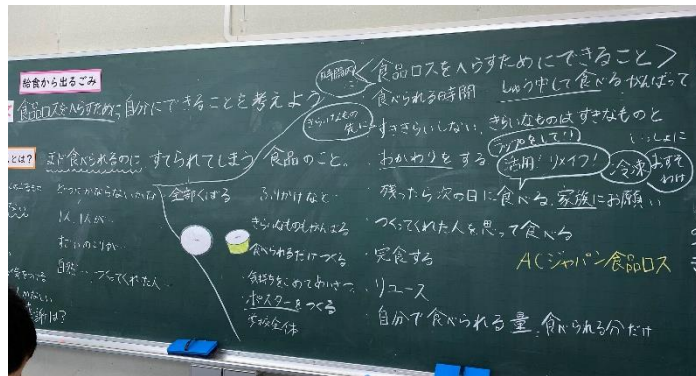 給食から出るごみ
食品ロスをへらすために自分にできることを考えよう
とは?
まだ食べられるのに すてられてしまう 食品のこと。
全部くばる
1人1人が…
自然… つくってくれた人…
ふりかけなど
きらいなものもがんばる
食べられるだけつくる
気持ちをこめてあいさつ
ポスターをつくる
学校全体
時間内
<食品ロスをへらすためにできること>
食べられる時間
しゅう中して食べる がんばって
きらいなもの
先に
すききらいしない。
きらいなものはすきなものと
いっしょに
おかわりをする
ラップをして!!
活用!リメイク!
冷凍
おすそ
わけ
残ったら次の日に食べる。家族にお願い
つくってくれた人を思って食べる
完食する
ACジャパン食品ロス
リユース
自分で食べられる量、食べられる分だけ